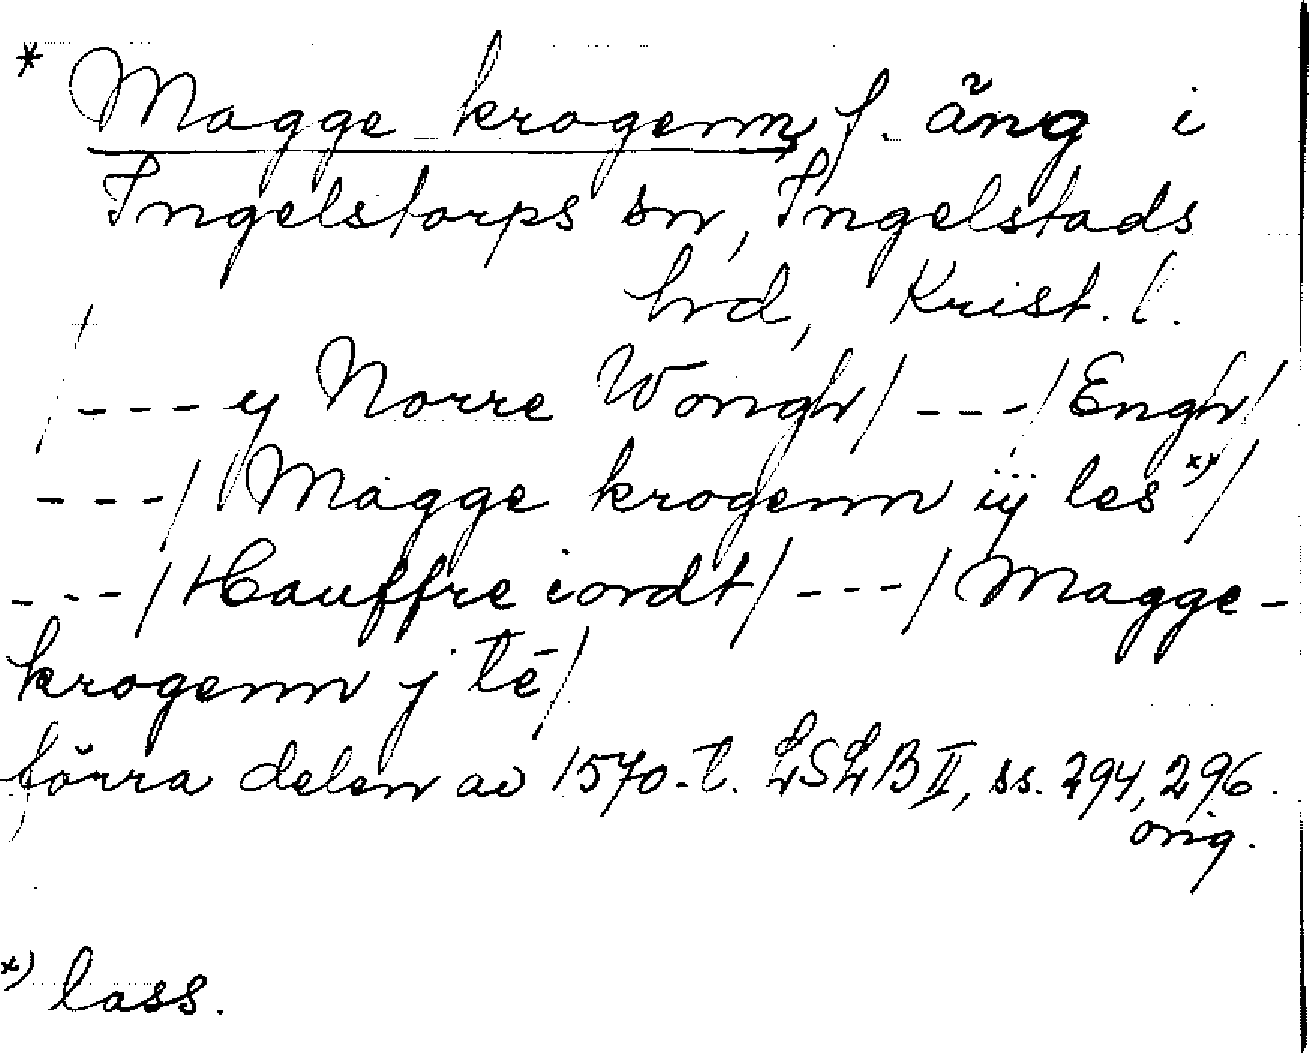 * Magge krogenn, f. äng i
Ingelstorps sn, Ingelstads
hrd, Krist. l.
/---y Norre Wongh/ ---/Engh/
---/ Magge krogenn iij les x)/
---/Hauffre iordt/ ---/ Magge-
krogenn j lé/
förra delen av 1570-t. LSLB II, ss. 294, 296.
orig.
x) lass.